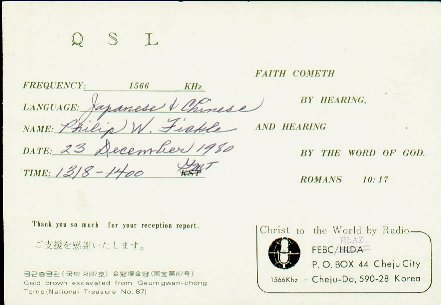 Q S L
FREQUENCY: 1566 KHz
LANGUAGE: Japanese & Chinese
NAME: Philip W. Fickle
DATE: 23 December 1980
TIME: 1318-1400 GMT KST
FAITH COMETH
BY HEARING,
AND HEARING
BY THE WORD OF GOD.
ROMANS 10:17
Thank you so much for your reception report.
ご支援を感謝いたします。
금관총금관(국보 제87호) 金冠塚金冠(国宝第87号)
Gold crown excavated from Geumgwan-chong
Tomb(National Treasure No. 87)
Christ to the World by Radio
HLAZ
FEBC/HLDA
P. O. BOX 44 Cheju City
1566Khz Cheju-Do, 590-28 Korea